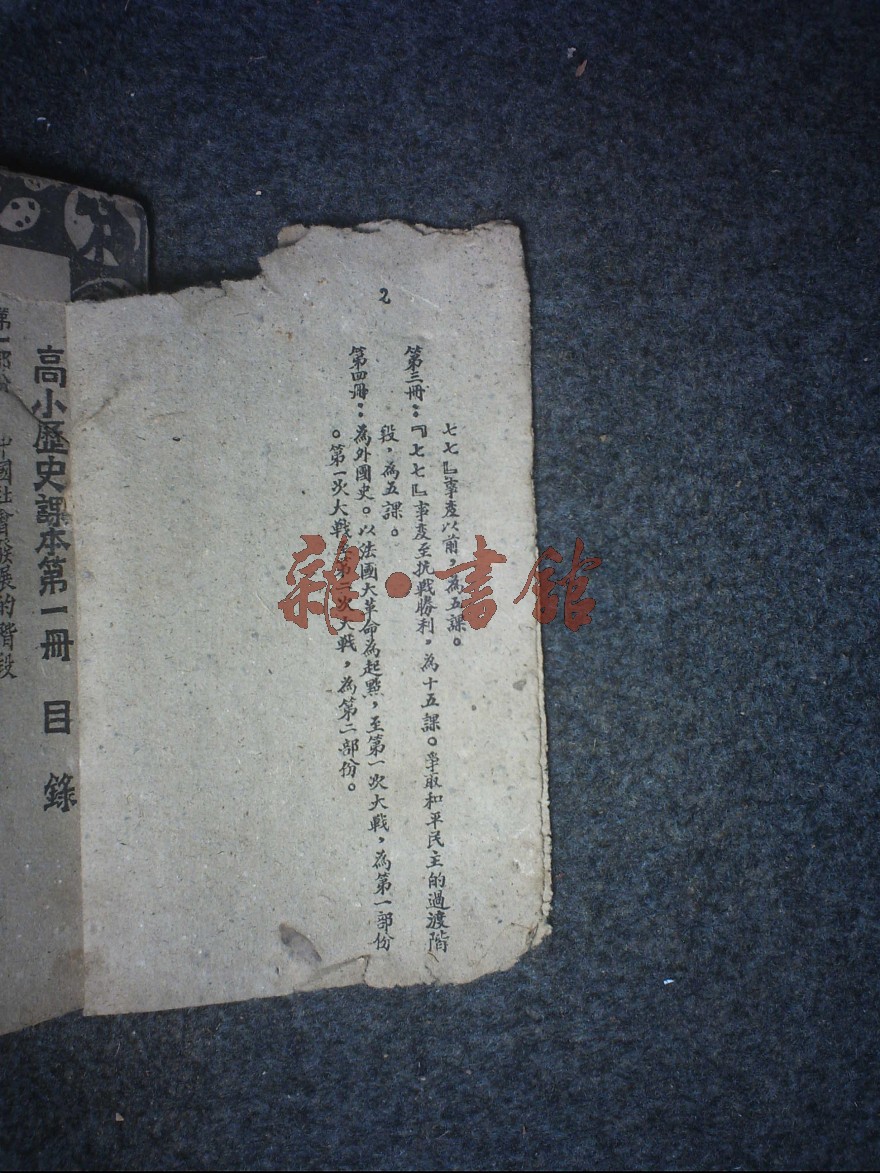 2
七七』事变以前，為五課。
第三冊：『七七』事变至抗战勝利，為十五課。爭取和平民主的過渡階
段，為五課。
第四冊：為外國史。以法國大革命為起點，至第一次大戰，為第一部份
。第一次大戰至第二次大戰，為第二部份。
高小歷史課本第一冊 目錄
第一部份 中國社會發展的階段
雜·書館